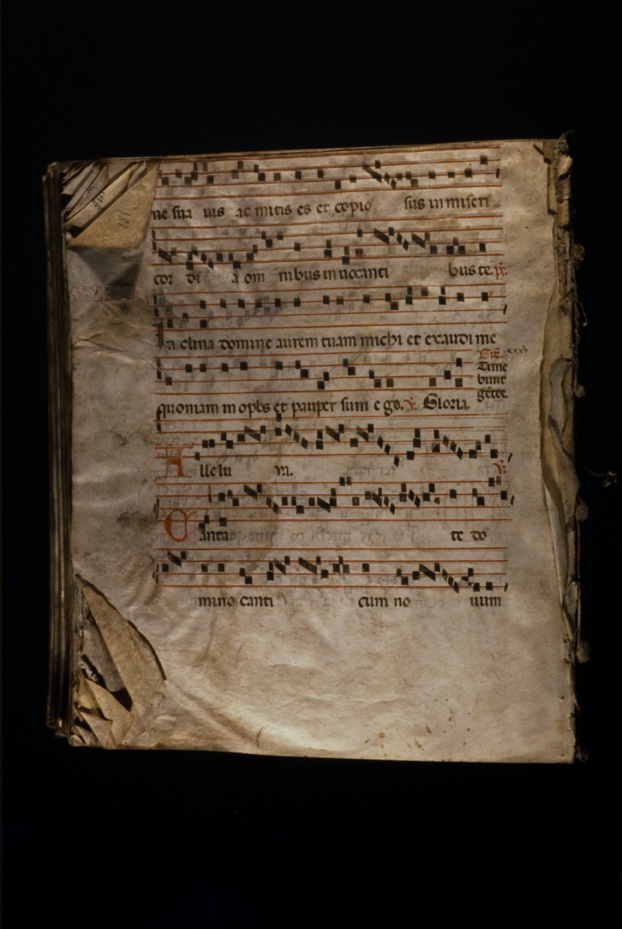 ne sua uis ac mitis es et copio sus in miseri
cor di a om nibus inuocanti bus te. ps.
In clina domine aurem tuam michi et exaudi me
Time
bunt
gētes.
quoniam inops et pauper sum ego. V. Gloria
Alle lu ya. V.
Canta te do
mino canti cum no uum